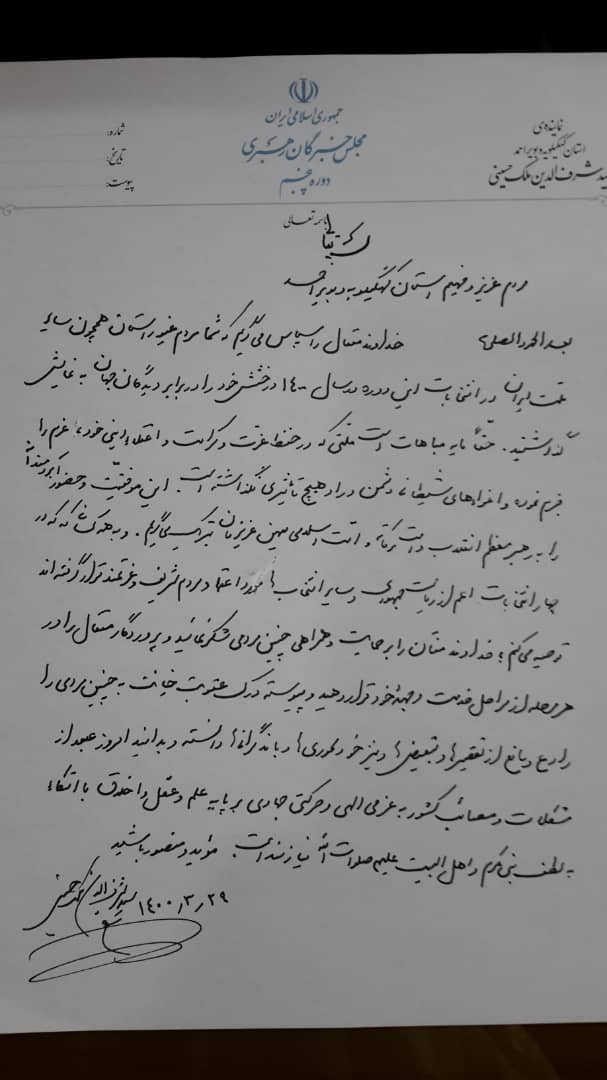 جمهوری اسلامی ایران
مجلس خبرگان رهبری
دوره پنجم
نماینده‌ی
استان کهگیلویه و بویراحمد
سید شرف الدین ملک حسینی
شماره:
تاریخ:
پیوست:
باسمه تعالی
مردم عزیز و فهیم استان کهگیلویه و بویراحمد
بعد الحمد و الصلوة خداوند متعال را سپاس می گویم که شما مردم غیور استان همچون سایر
ملت ایران در انتخابات این دوره در سال ۱۴۰۰ درخشش خود را در برابر دیدگان جهان به نمایش
گذاشتید. حقاً مایه مباهات است ملتی که در حفظ عزت و کرامت و اعتلاء دینی خود، عزم را
جزم نموده و اغواهای شیطانی دشمن در او هیچ تاثیری نگذاشته است. این موفقیت و حضور آبرومندانه
را به رهبر معظم انقلاب دامت برکاته و امت اسلامی میهن عزیزمان تبریک می گویم. و به همه کسانی که در
چهار انتخابات اعم از ریاست جمهوری و سایر انتخاب ها مورد اعتماد مردم شریف و غیرتمند قرار گرفته اند
توصیه می کنم؛ خداوند منان را بر حمایت و همراهی چنین مردمی شکر نمائید و پروردگار متعال را در
هر مرحله از مراحل خدمت وجهۀ خود قرار دهید و پیوسته درک عقوبت خیانت به چنین مردمی را
رادع و مانع از تقصیرها و تبعیض ها و نیز خودمحوری ها و باندگرائی ها دانسته و بدانید امروز عبور از
مشکلات و مصائب کشور به عزمی الهی و حرکتی جهادی بر پایه علم و عقل و اخلاق با اتکاء
به لطف نبی مکرم و اهل البیت علیهم صلوات الله نیازمند است. مؤید و منصور باشید
سید شرف الدین ملک حسینی
۱۴۰۰/۳/۲۹